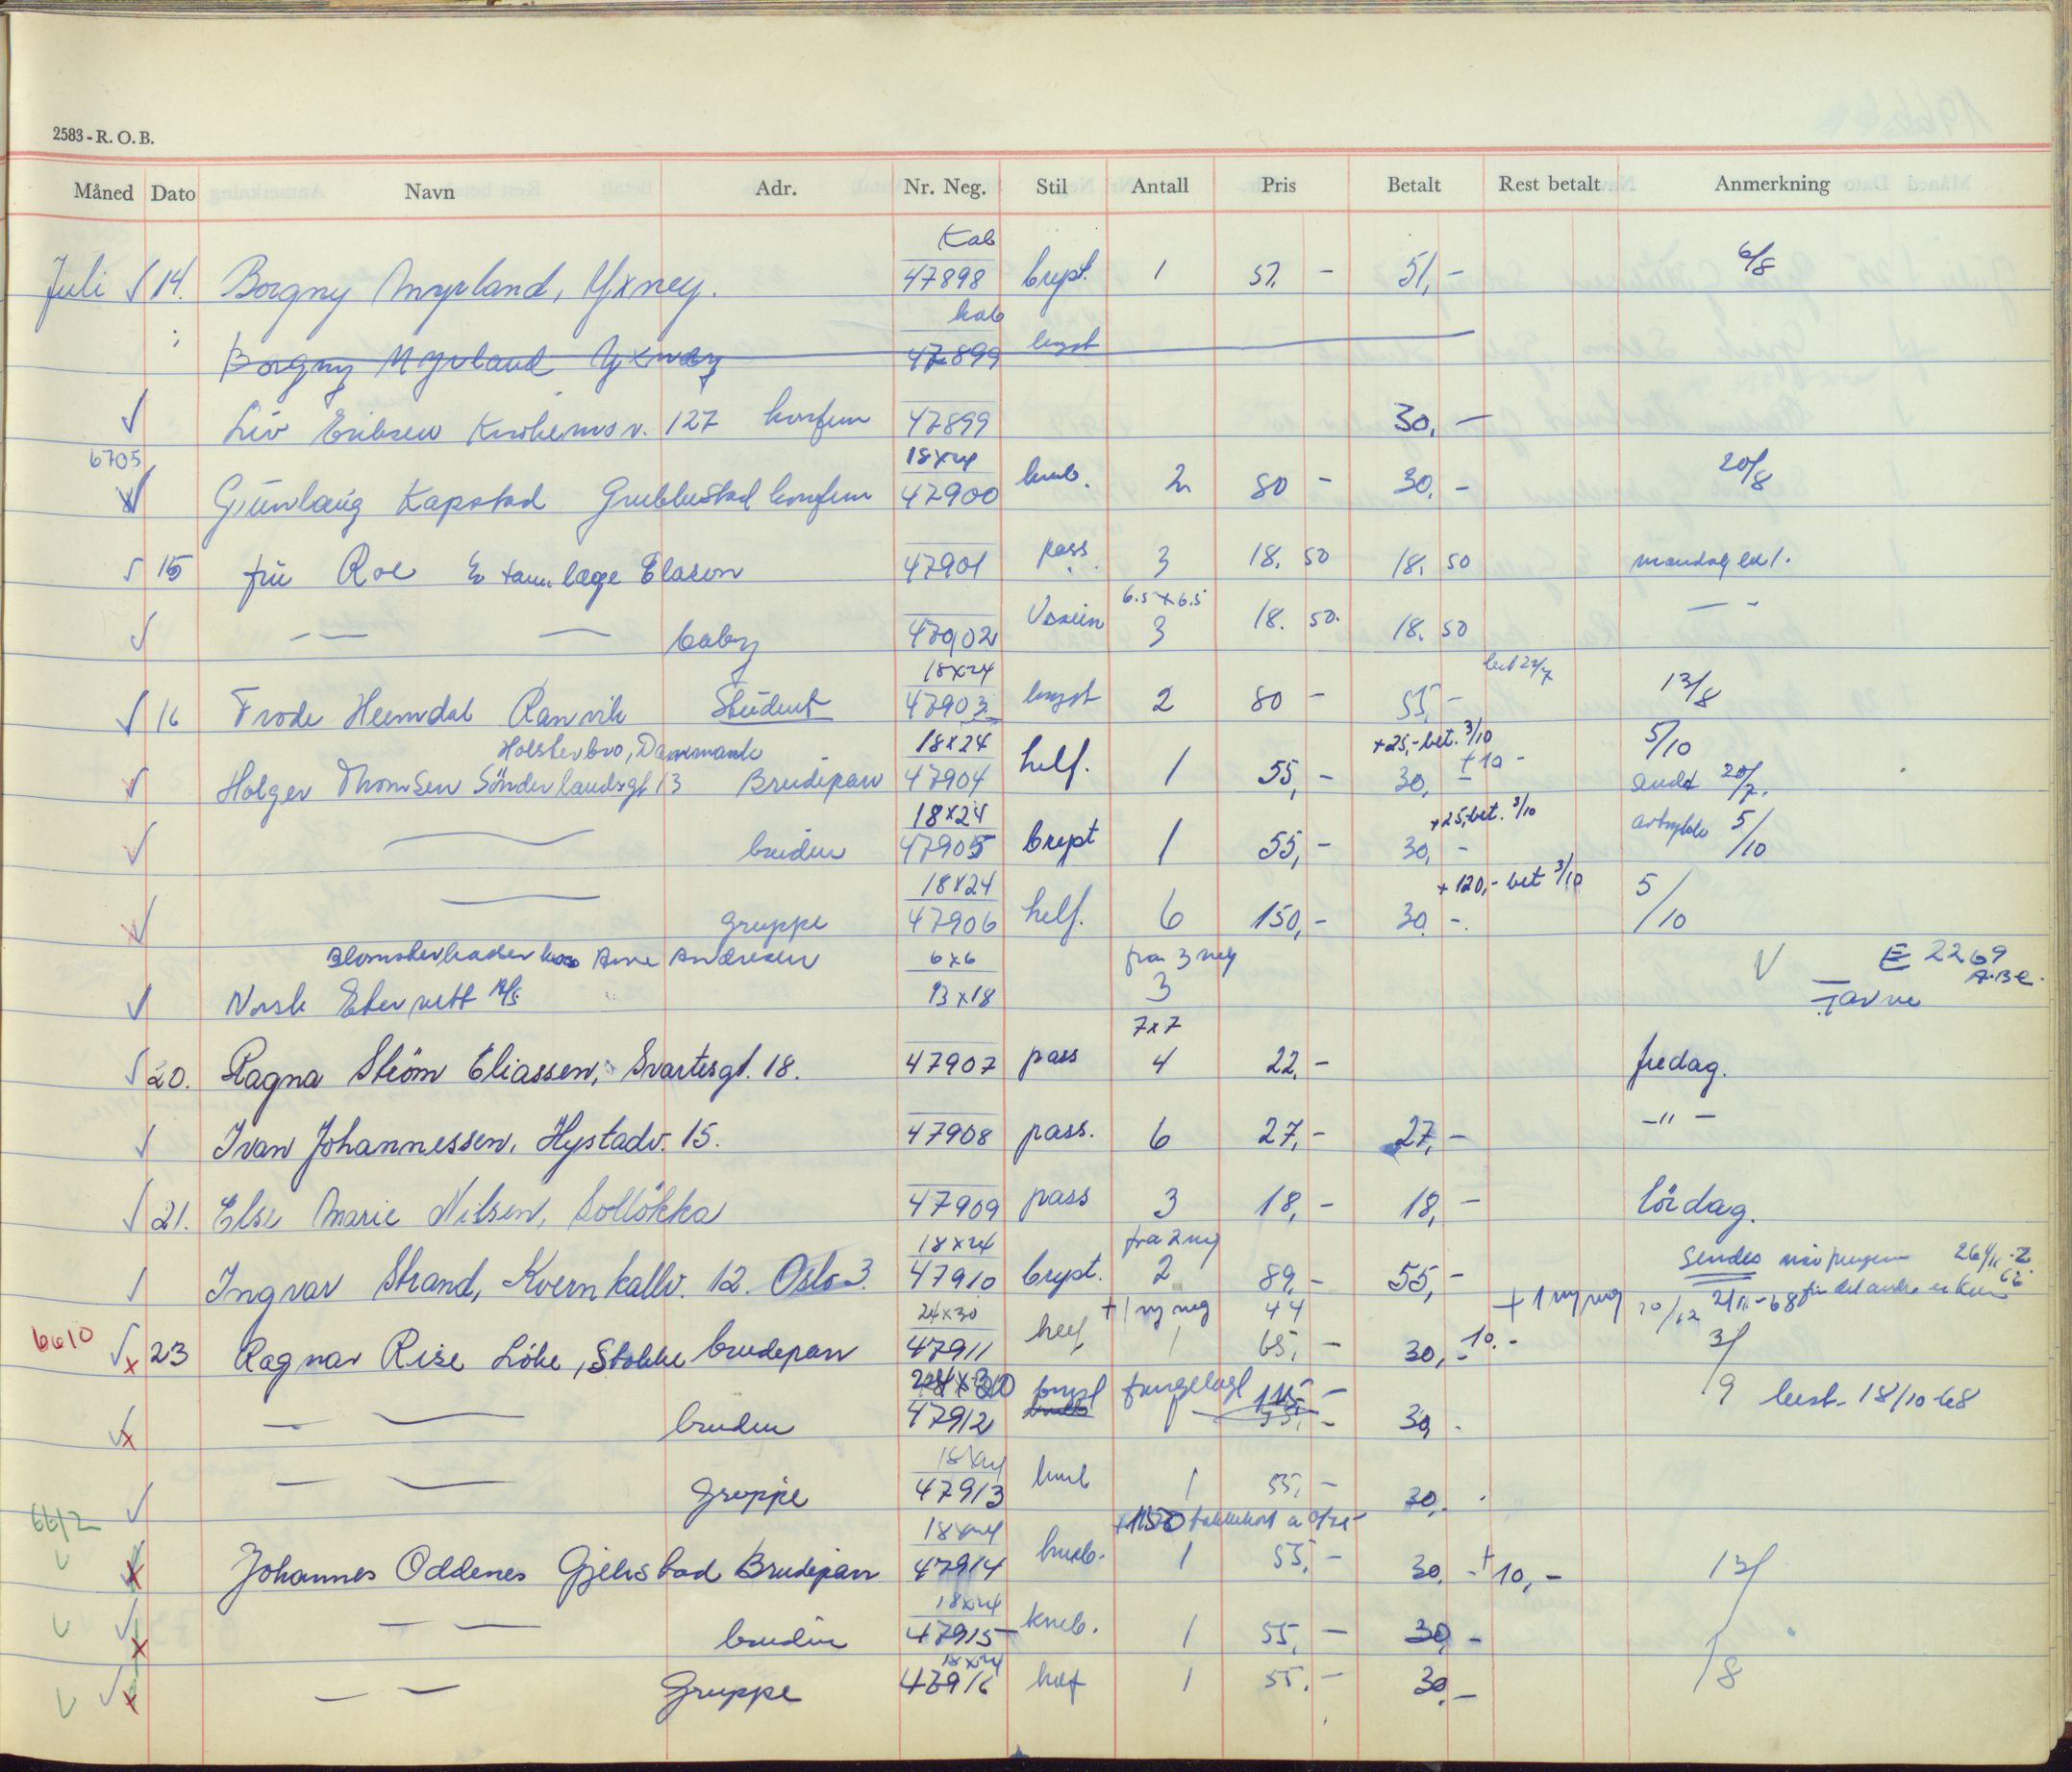 2583 - R. O. B.
Måned Dato Navn Adr. Nr. Neg. Stil Antall Pris Betalt Rest betalt Anmerkning
Kab
Juli 14. Borgny Myrland, Yxney. 47898 bryst. 1 51, - 51, - 6/8
kab
Borgny Myrland Yxney 47899 bryst
Liv Eriksen 127 konfirm 47899 30, -
6705 18x24
Gunlaug Kapstad konfirm 47900 kneb. 2 80 - 30, - 20/8
15 fru Roe tannlege 47901 pass 3 18. 50 18. 50 mandag
6.5 x 6.5
— — baby 47902 3 18. 50. 18. 50 — -
18x24 22/7
16 Frode Heimdal Ranvik Student 47903 bryst 2 80 - 55, - 13/8
Holsterbro, Danmark 18x24 +25,- bet. 3/10 5/10
Holger Thomsen Sönderlandsgt 13 Brudepar 47904 helf. 1 55, - 30, - +10 - sendt 20/7.
18x24 +25,- bet. 3/10
bruden 47905 bryst 1 55, - 30, - 5/10
18x24 +120,- bet 3/10
gruppe 47906 helf. 6 150, - 30 -. 5/10
Arne Andresen 6x6 fra 3 neg E 2269
Norsk A/S 13x18 3
7x7
20. Ragna Ström Eliassen, Svartesgt. 18. 47907 pass 4 22, - fredag.
Ivan Johannessen, Hystadv. 15. 47908 pass. 6 27, - 27, - -"-
21. Else Marie Nilsen, Solløkka 47909 pass 3 18, - 18, - lördag.
18x24 fra 2 neg Sendes
Ingvar Strand, Kvernkallv. 12. Oslo 3. 47910 bryst. 2 89, - 55, -
24x30 +1 ny neg 44 +1 ny neg 20/12
6610 23 Ragnar Rise Löke, Stokke brudepar 47911 helf 1 65, - 30, - 10. - 3/9
— — bruden 47912 bryst 1 30 - 18/10-68
18x24
— — Gruppe 47913 kneb 1 55, - 30,
6612 18x24
Johannes Oddenes Gjekstad Brudepar 47914 kneb. 1 55, - 30, - +10, - 13/8
18x24
— — bruden 47915 kneb. 1 55, - 30, -
18x24
— — Gruppe 47916 helf 1 55, - 30, -